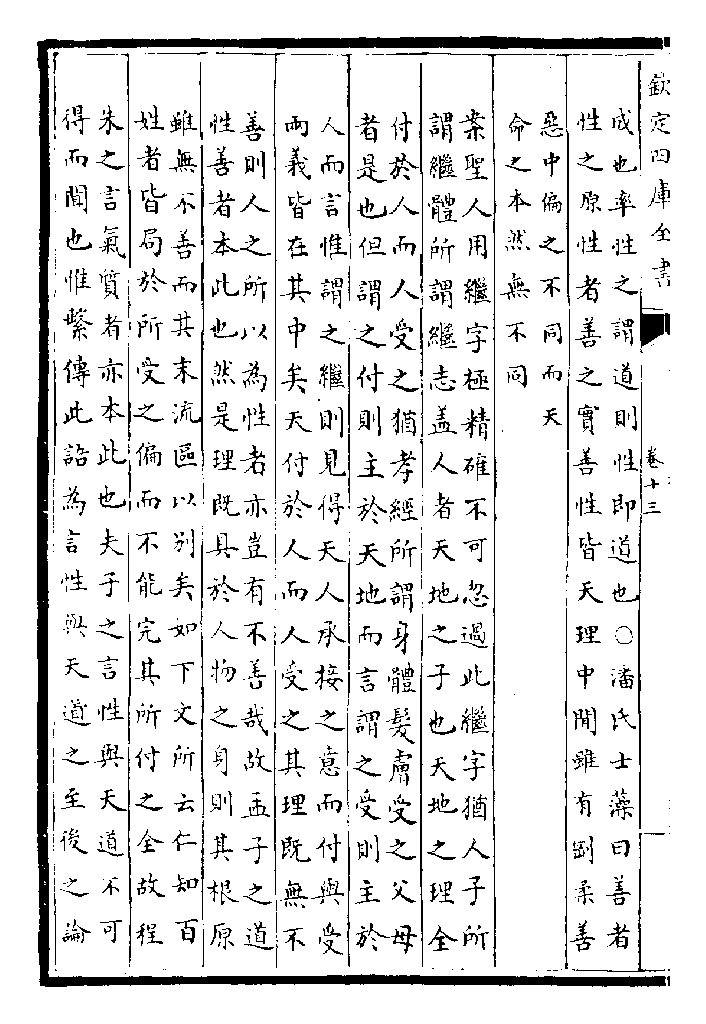 欽定四庫全書
卷十三
成也率性之謂道則性即道也○潘氏士藻曰善者
性之原性者善之實善性皆天理中間雖有剛柔善
惡中偏之不同而天
命之本然無不同
案聖人用繼字極精確不可忽過此繼字猶人子所
謂繼體所謂繼志盖人者天地之子也天地之理全
付於人而人受之猶孝經所謂身體髮膚受之父母
者是也但謂之付則主於天地而言謂之受則主於
人而言惟謂之繼則見得天人承接之意而付與受
兩義皆在其中矣天付於人而人受之其理既無不
善則人之所以為性者亦豈有不善哉故孟子之道
性善者本此也然是理既具於人物之身則其根原
雖無不善而其末流區以别矣如下文所云仁知百
姓者皆局於所受之偏而不能完其所付之全故程
朱之言氣質者亦本此也夫子之言性與天道不可
得而聞也惟繫傳此語為言性與天道之至後之論